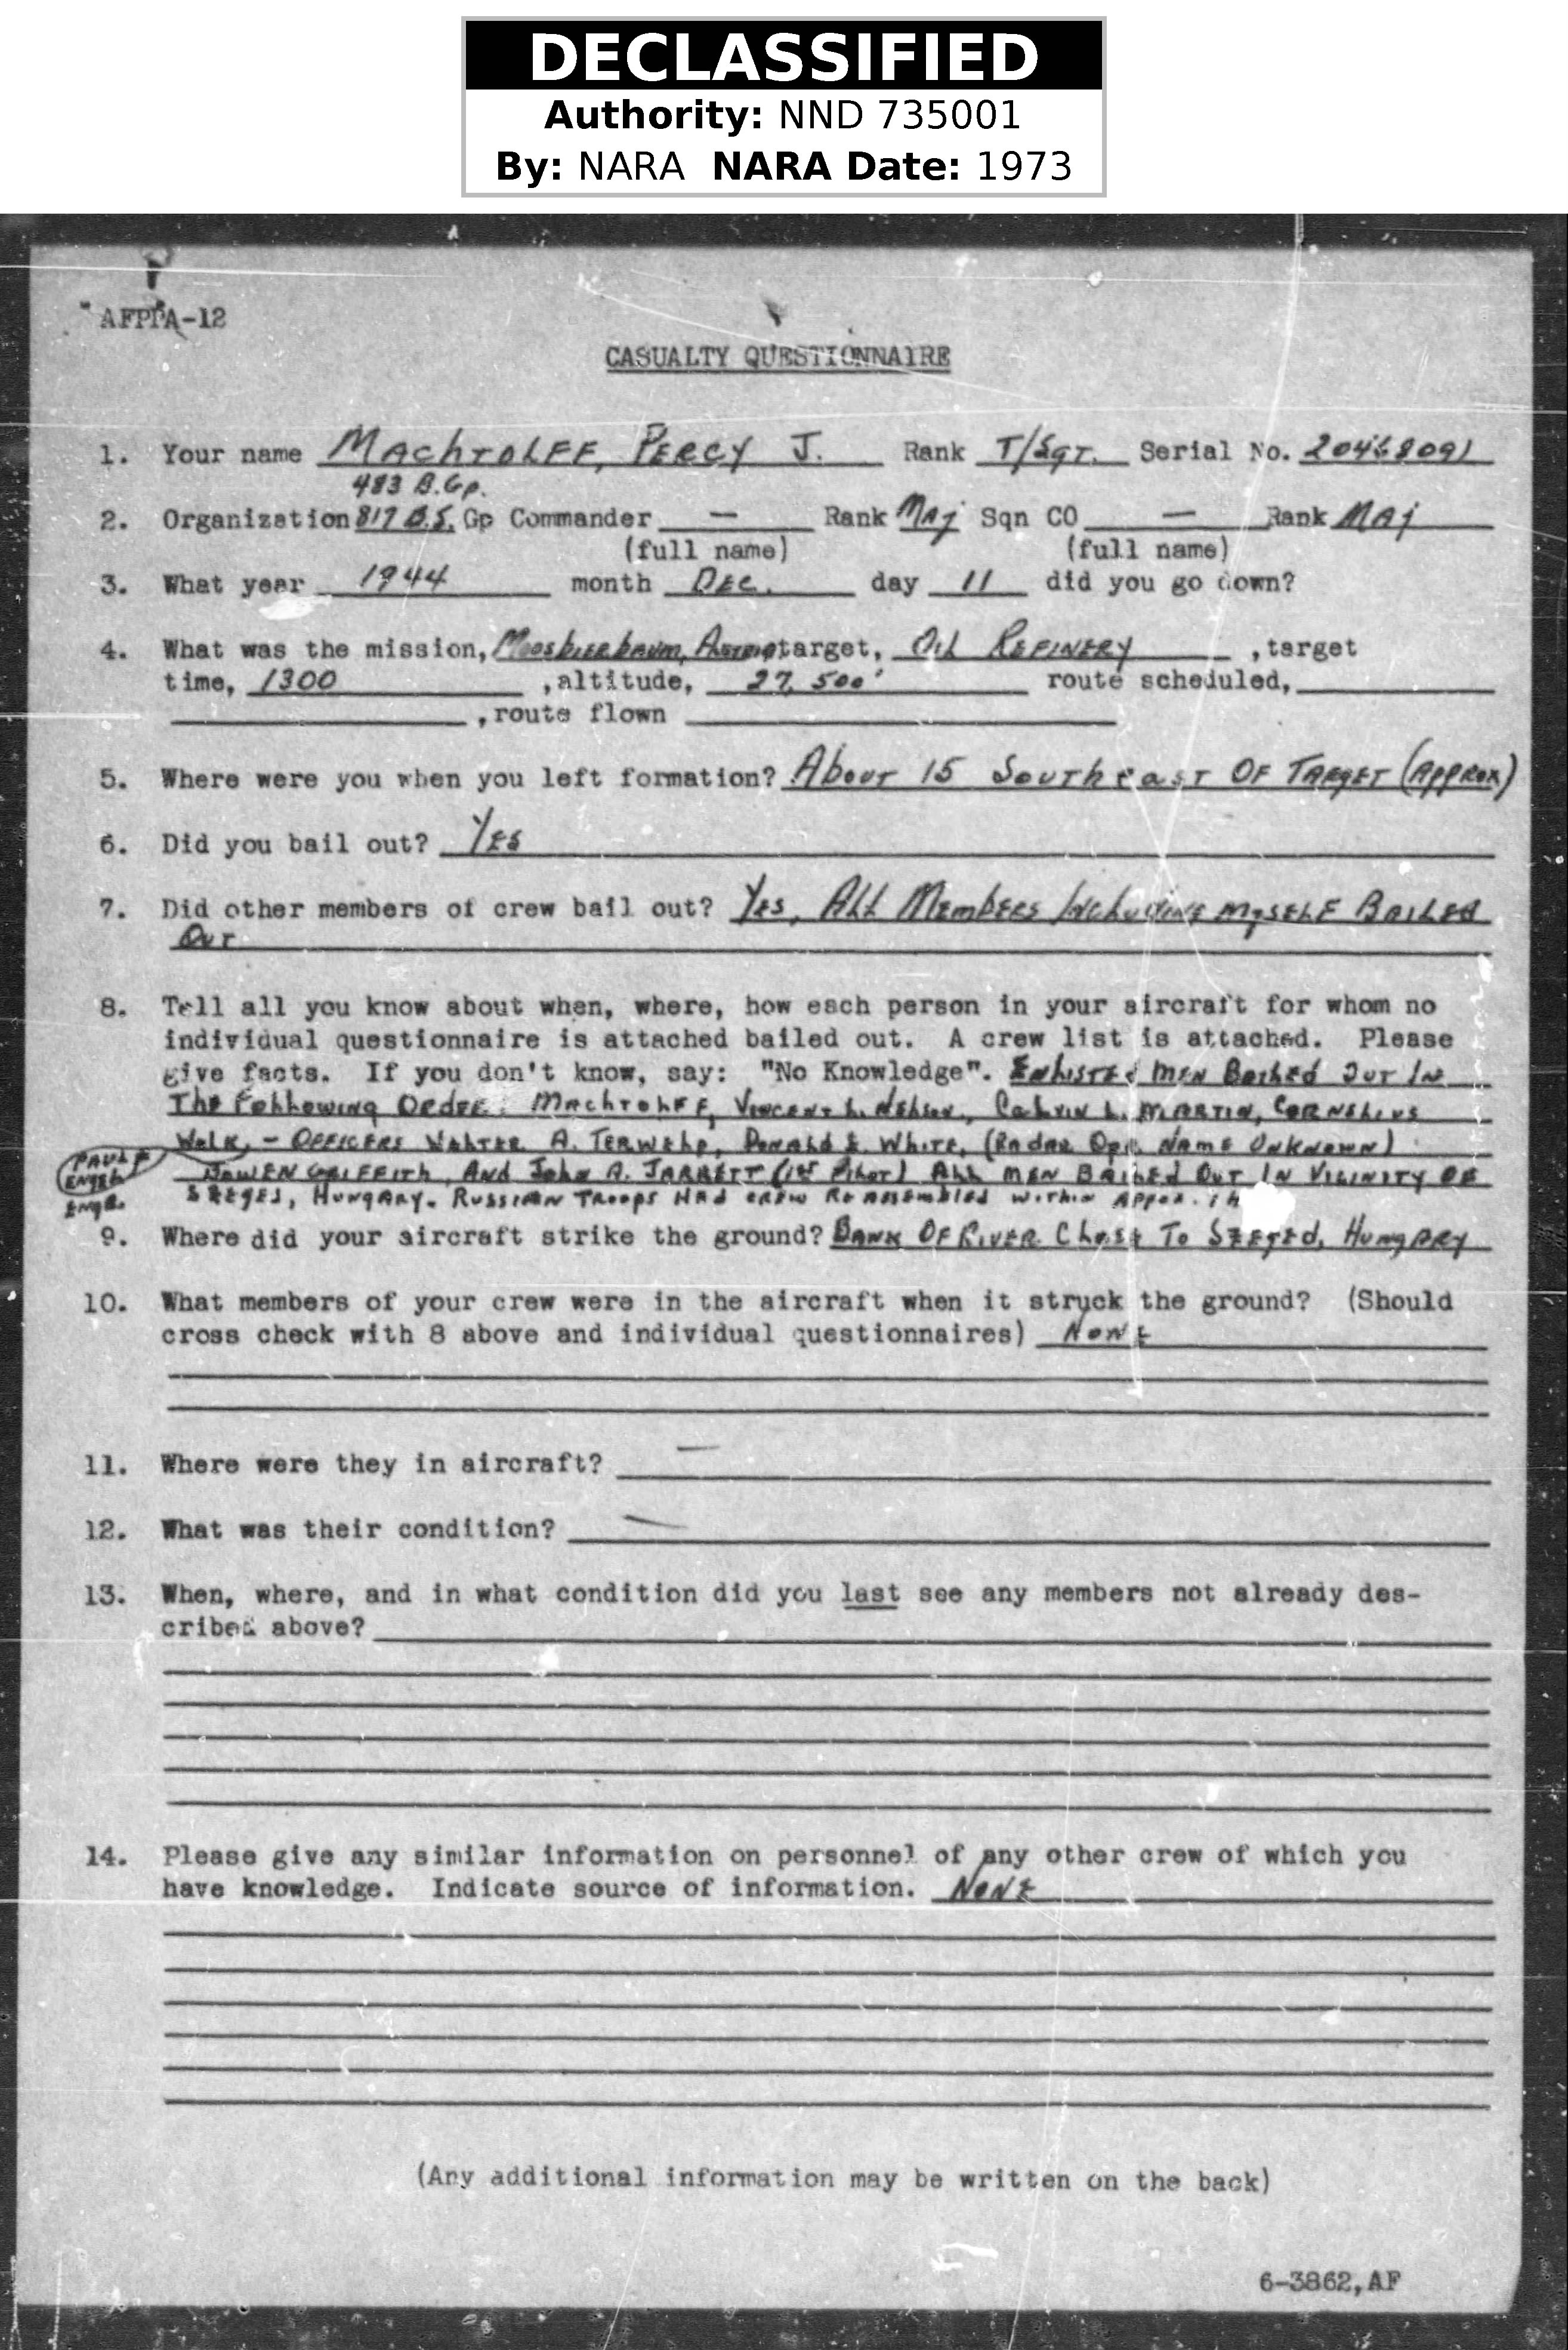 DECLASSIFIED
Authority: NND 735001
By: NARA NARA Date: 1973
AFPPA-12
CASUALTY QUESTIONNAIRE
1. Your name MAChTOLFF, PERCY J. Rank T/SGT. Serial No. 20468091
483 B.Gp.
2. Organization 817 B.S. Gp Commander — Rank MAj Sqn CO — Rank MAj
(full name) (full name)
3. What year 1944 month DEC. day 11 did you go down?
4. What was the mission, Moosbierbaum, target, OIL REFINERY , target
time, 1300 , altitude, 27,500' route scheduled,
, route flown
5. Where were you when you left formation? About 15 SouthEAST OF TARGET (APPROX)
6. Did you bail out? YES
7. Did other members of crew bail out? YES, ALL MEMbERS INCLUDING MYSELF BAILED
OUT
8. Tell all you know about when, where, how each person in your aircraft for whom no
individual questionnaire is attached bailed out. A crew list is attached. Please
give facts. If you don't know, say: "No Knowledge". ENLISTED MEN BAILED OUT IN
The FOLLOWING ORDER: MAChTOLFF, VINCENT L. NELSON, CALVIN L. MARTIN, CORNELIUS
WALK, – OFFICERS WALTER A. TERWELP, DONALD E. WHITE, (RADAR OPR. NAME UNKNOWN)
PAUL F
ENGEL
ENGR.
GRIFFITH, AND John A. JARRETT (1ST PILOT) ALL MEN BAILED OUT IN VICINITY OF
SZEGED, HUNGARY. RUSSIAN TROOPS HAD CREW REASSEMBLED WITHIN APPOX. 1 H
9. Where did your aircraft strike the ground? BANK OF RIVER CLOSE TO SZEGED, HUNGARY
10. What members of your crew were in the aircraft when it struck the ground? (Should
cross check with 8 above and individual questionnaires) NONE
11. Where were they in aircraft? —
12. What was their condition? —
13. When, where, and in what condition did you last see any members not already des-
cribed above?
14. Please give any similar information on personnel of any other crew of which you
have knowledge. Indicate source of information. NONE
(Any additional information may be written on the back)
6-3862,AF